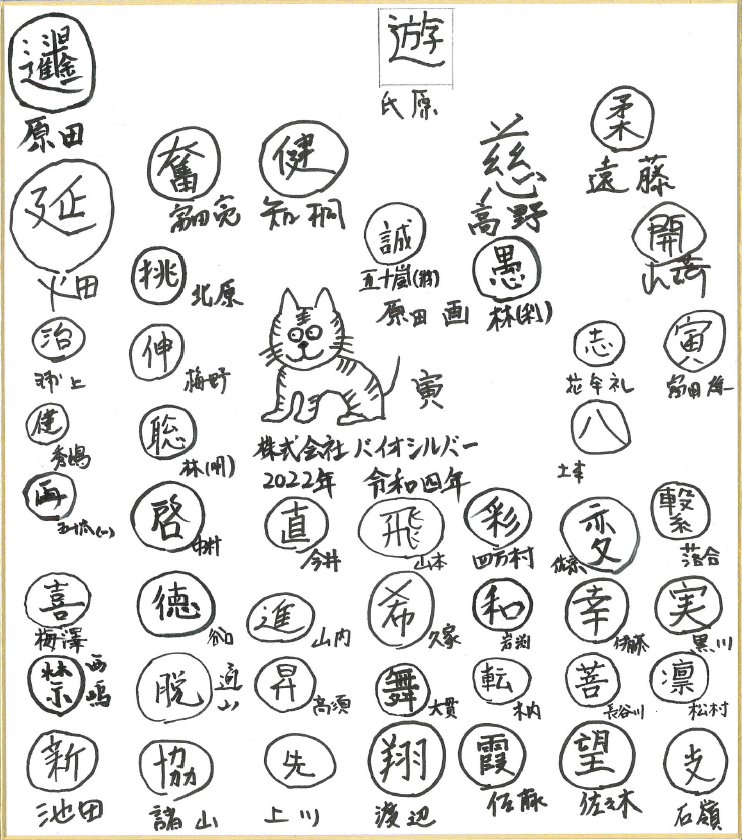 遊
氏原
原田
柔
遠藤
奮
冨田亮
健
知桐
慈
高野
延
誠
五十嵐(務)
開
挑
北原
愚
林(利)
原田 画
治
伸
梅野
寅
志
寅
健
聡
林(明)
八
株式会社バイオシルバー
2022年 令和四年
再
啓
中村
直
今井
飛
山本
彩
四方村
変
佐京
繋
落合
喜
梅澤
徳
谷口
進
山内
希
久家
和
岩渕
幸
伊藤
実
黒川
禁
西嶋
脱
迫山
昇
高須
舞
大貫
転
木内
菩
長谷川
凛
松村
新
池田
協
諸山
先
上川
翔
渡辺
霞
佐藤
望
佐々木
支
石嶺